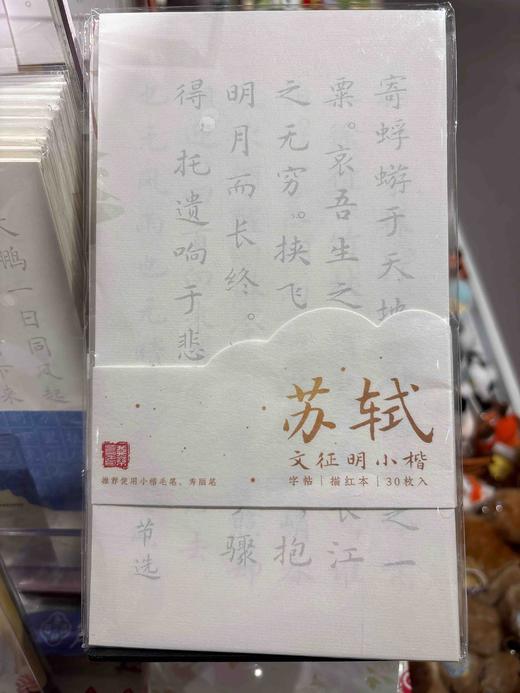 寄蜉蝣于天地
之一
粟。哀吾生之
长江
之无穷。挟飞
抱
明月而长终。
骤
得,托遗响于悲
节选
苏轼
文征明小楷
字帖|描红本|30枚入
推荐使用小楷毛笔、秀丽笔
大鹏一日同风起
下来